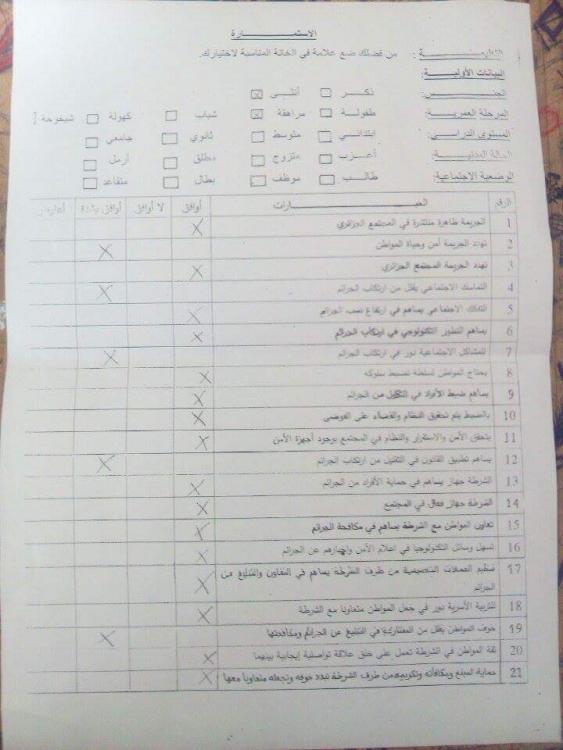 الاستمــــارة
التعليمــــة : من فضلك ضع علامة في الخانة المناسبة لاختيارك.
البيانات الأولية:
الجنــس: ذكــر ☐ أنثــى ☒
المرحلة العمرية: طفولة ☐ مراهقة ☒ شباب ☐ كهولة ☐ شيخوخة
المستوى الدراسي: ابتدائي ☐ متوسط ☐ ثانوي ☐ جامعي ☐
الحالة المدنية: أعزب ☐ متزوج ☐ مطلق ☐ أرمل ☐
الوضعية الاجتماعية: طالب ☐ موظف ☐ بطال ☐ متقاعد ☐
الرقم العبــارات أوافق لا أوافق أوافق بشدة
1 الجريمة ظاهرة منتشرة في المجتمع الجزائري X
2 تهدد الجريمة أمن وحياة المواطن X
3 تهدد الجريمة المجتمع الجزائري X
4 التماسك الاجتماعي يقلل من ارتكاب الجرائم X
5 التفكك الاجتماعي يساهم في ارتفاع نسب الجرائم X
6 يساهم التطور التكنولوجي في ارتكاب الجرائم X
7 للمشاكل الاجتماعية دور في ارتكاب الجرائم X
8 يحتاج المواطن لسلطة تضبط سلوكه X
9 يساهم ضبط الأفراد في التقليل من الجرائم X
10 بالضبط يتم تحقيق النظام والقضاء على الفوضى X
11 يتحقق الأمن والاستقرار والنظام في المجتمع بوجود أجهزة الأمن X
12 يساهم تطبيق القانون في التقليل من ارتكاب الجرائم X
13 الشرطة جهاز يساهم في حماية الأفراد من الجرائم X
14 الشرطة جهاز فعال في المجتمع X
15 تعاون المواطن مع الشرطة يساهم في مكافحة الجرائم X
16 تسهل وسائل التكنولوجيا في اعلام الأمن وإخبارهم عن الجرائم X
17 تنظيم الحملات التحسيسية من طرف الشرطة يساهم في التعاون والتبليغ عن
الجرائم X
18 للتربية الأسرية دور في جعل المواطن متعاونا مع الشرطة X
19 خوف المواطن يقلل من المشاركة في التبليغ عن الجرائم ومكافحتها X
20 ثقة المواطن في الشرطة تعمل على خلق علاقة تواصلية إيجابية بينهما X
21 حماية المبلغ ومكافأته وتكريمه من طرف الشرطة تبدد خوفه وتجعله متعاونا معها X